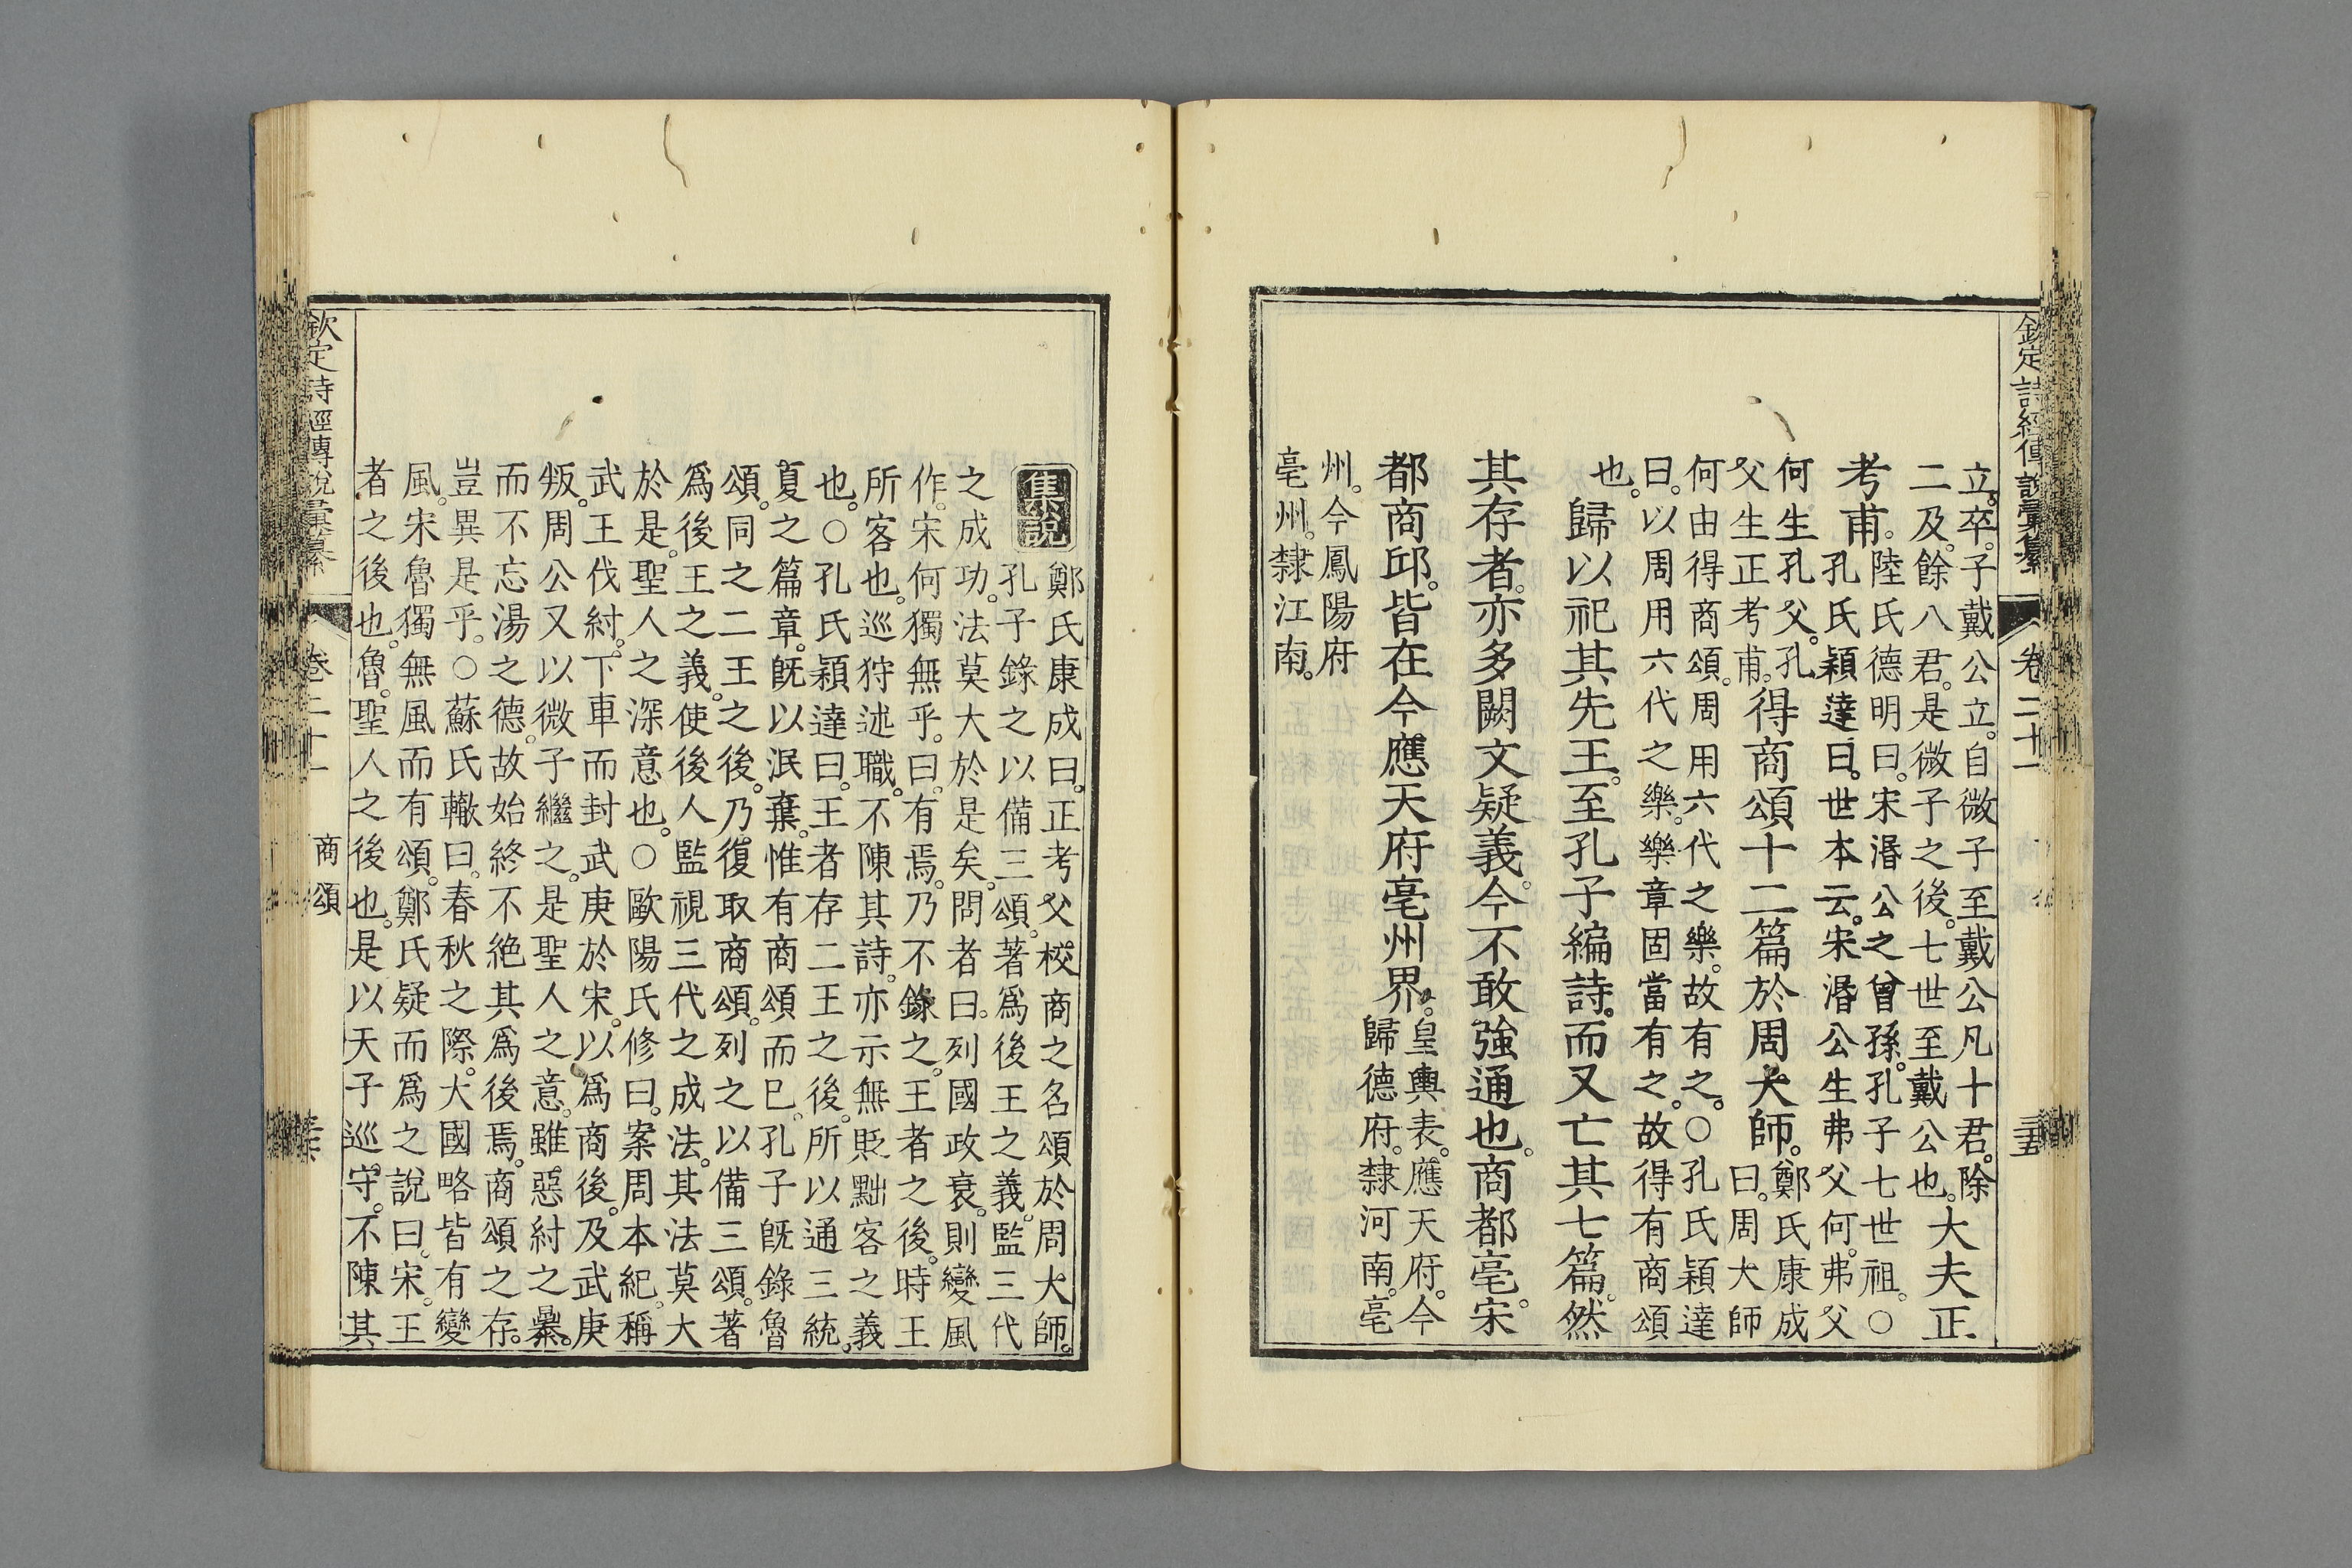 欽定詩經傳說彙纂 卷二十一 三五
立。卒。子戴公立。自微子至戴公凡十君。除
二及。餘八君。是微子之後。七世至戴公也。大夫正
考甫。陸氏德明曰。宋湣公之曾孫。孔子七世祖。○
孔氏穎達曰。世本云。宋湣公生弗父何。弗父
何生孔父。孔
父生正考甫。得商頌十二篇於周大師。鄭氏康成
曰。周大師
何由得商頌。周用六代之樂。故有之。○孔氏穎達
曰。以周用六代之樂。樂章固當有之。故得有商頌
也。歸以祀其先王。至孔子編詩。而又亡其七篇。然
其存者。亦多闕文疑義。今不敢強通也。商都亳。宋
都商邱。皆在今應天府亳州界。皇輿表。應天府。今
歸德府。隸河南。亳
州。今鳳陽府
亳州。隸江南。
集說 鄭氏康成曰。正考父校商之名頌於周大師。
孔子錄之以備三頌。著爲後王之義。監三代
之成功。法莫大於是矣。問者曰。列國政衰。則變風
作。宋何獨無乎。曰。有焉。乃不錄之。王者之後。時王
所客也。巡狩述職。不陳其詩。亦示無貶黜客之義
也。○孔氏穎達曰。王者存二王之後。所以通三統。
夏之篇章。旣以泯棄。惟有商頌而已。孔子旣錄魯
頌。同之二王之後。乃復取商頌。列之以備三頌。著
爲後王之義。使後人監視三代之成法。其法莫大
於是。聖人之深意也。○歐陽氏修曰。案周本紀。稱
武王伐紂。下車而封武庚於宋。以爲商後。及武庚
叛。周公又以微子繼之。是聖人之意。雖惡紂之暴。
而不忘湯之德。故始終不絕其爲後焉。商頌之存。
豈異是乎。○蘇氏轍曰。春秋之際。大國略皆有變
風。宋魯獨無風而有頌。鄭氏疑而爲之說曰。宋。王
者之後也。魯。聖人之後也。是以天子巡守。不陳其
欽定詩經傳說彙纂 卷二十一 商頌